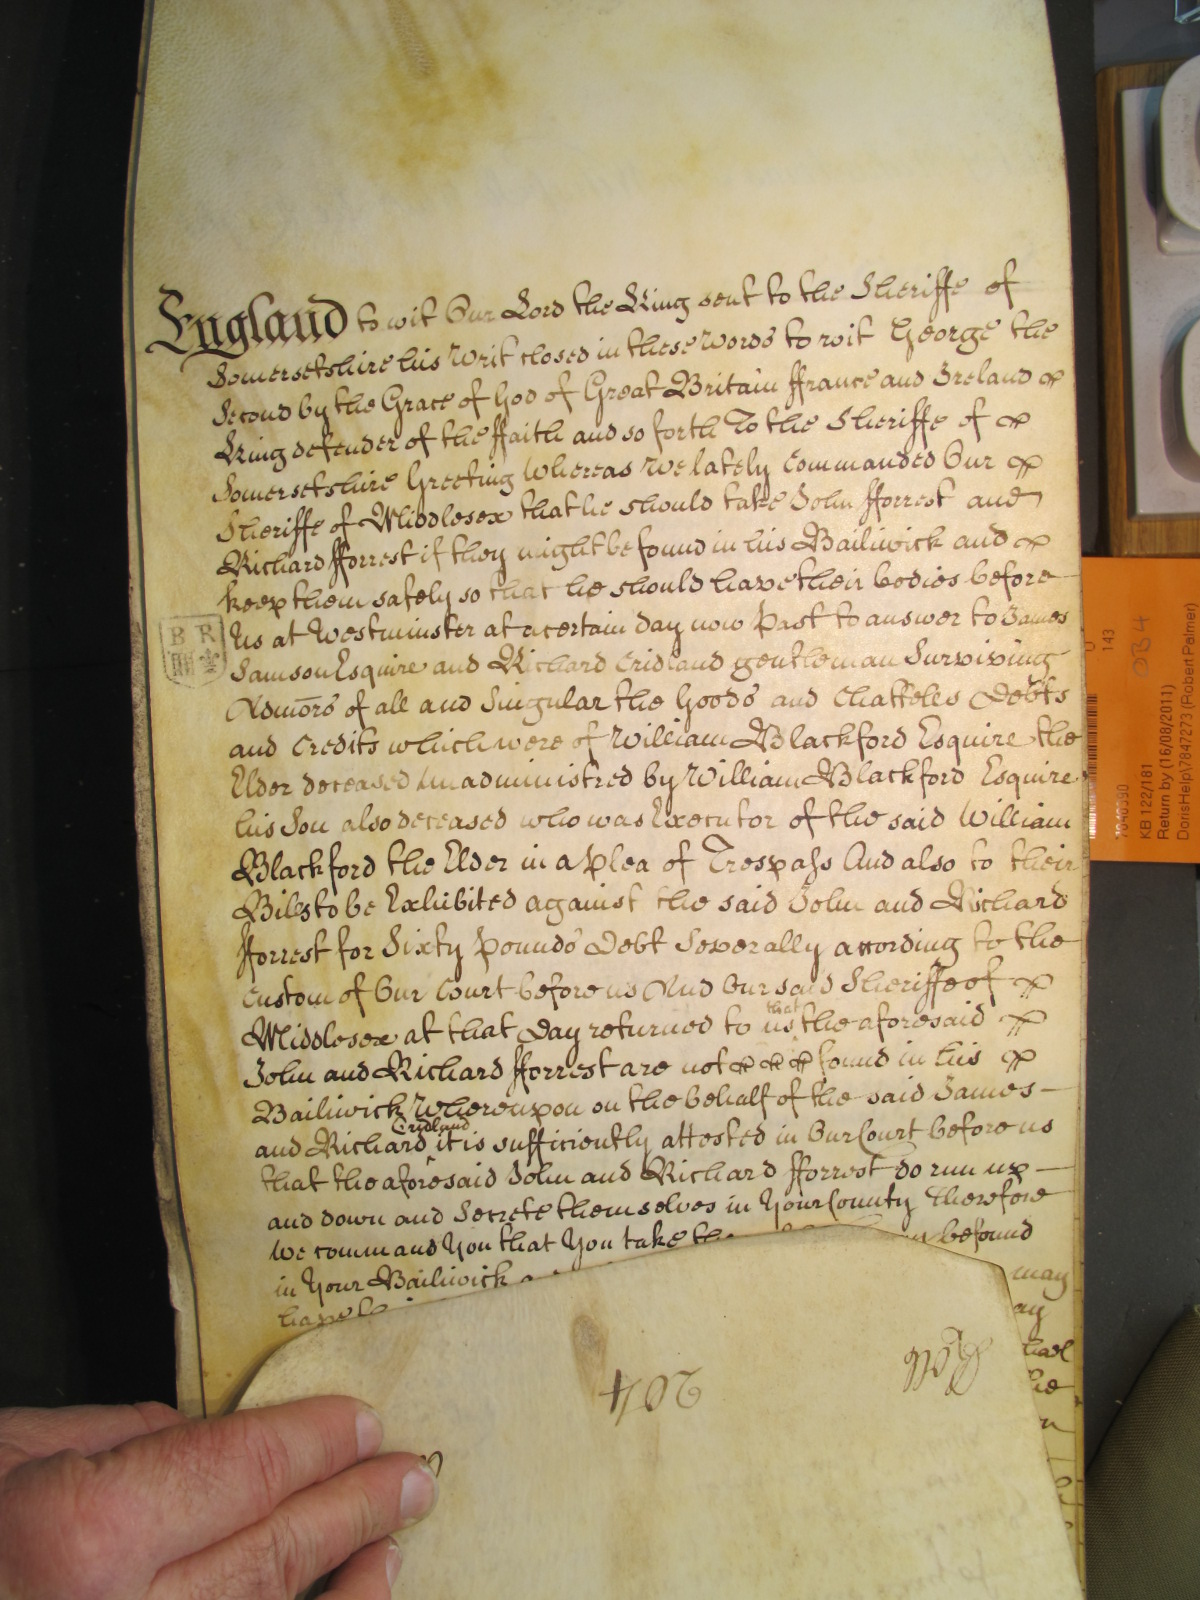 England to wit Our Lord the King sent to the Sheriffe of
Somersetshire his Writ closed in these Words to wit George the
Second by the Grace of God of Great Britain ffrance and Ireland
King defender of the ffaith and so forth To the Sheriffe of
Somersetshire Greeting Whereas We lately Commanded Our
Sheriffe of Middlesex that he should take John fforrest and
Richard fforrest if they might be found in his Bailiwick and
keep them safely so that he should have their bodies before
Us at Westminster at a certain day now Past to answer to James
B R
Samson Esquire and Richard Cridland gentleman Surviving
Admōrs of all and Singular the Goods and Chattells Debts
and Credits which were of William Blackford Esquire the
Elder deceased Unadministred by William Blackford Esquire
his Son also deceased who was Executor of the said William
Blackford the Elder in a Plea of Trespass And also to their
Bills to be Exhibited against the said John and Richard
fforrest for Sixty Pounds Debt Severally according to the
Custom of Our Court before us And Our said Sheriffe of
Middlesex at that Day returned to us that the aforesaid
John and Richard fforrest are not found in his
Bailiwick Whereupon on the behalf of the said James
and Richard Cridland it is sufficiently attested in Our Court before us
that the aforesaid John and Richard fforrest do run up
and down and Secrete themselves in Your County Therefore
We command You that You take be found
in Your Bailiwick may
204
143
OB4
7840390
KB 122/181
Return by (16/08/2011)
DorisHelp\7847273 (Robert Palmer)